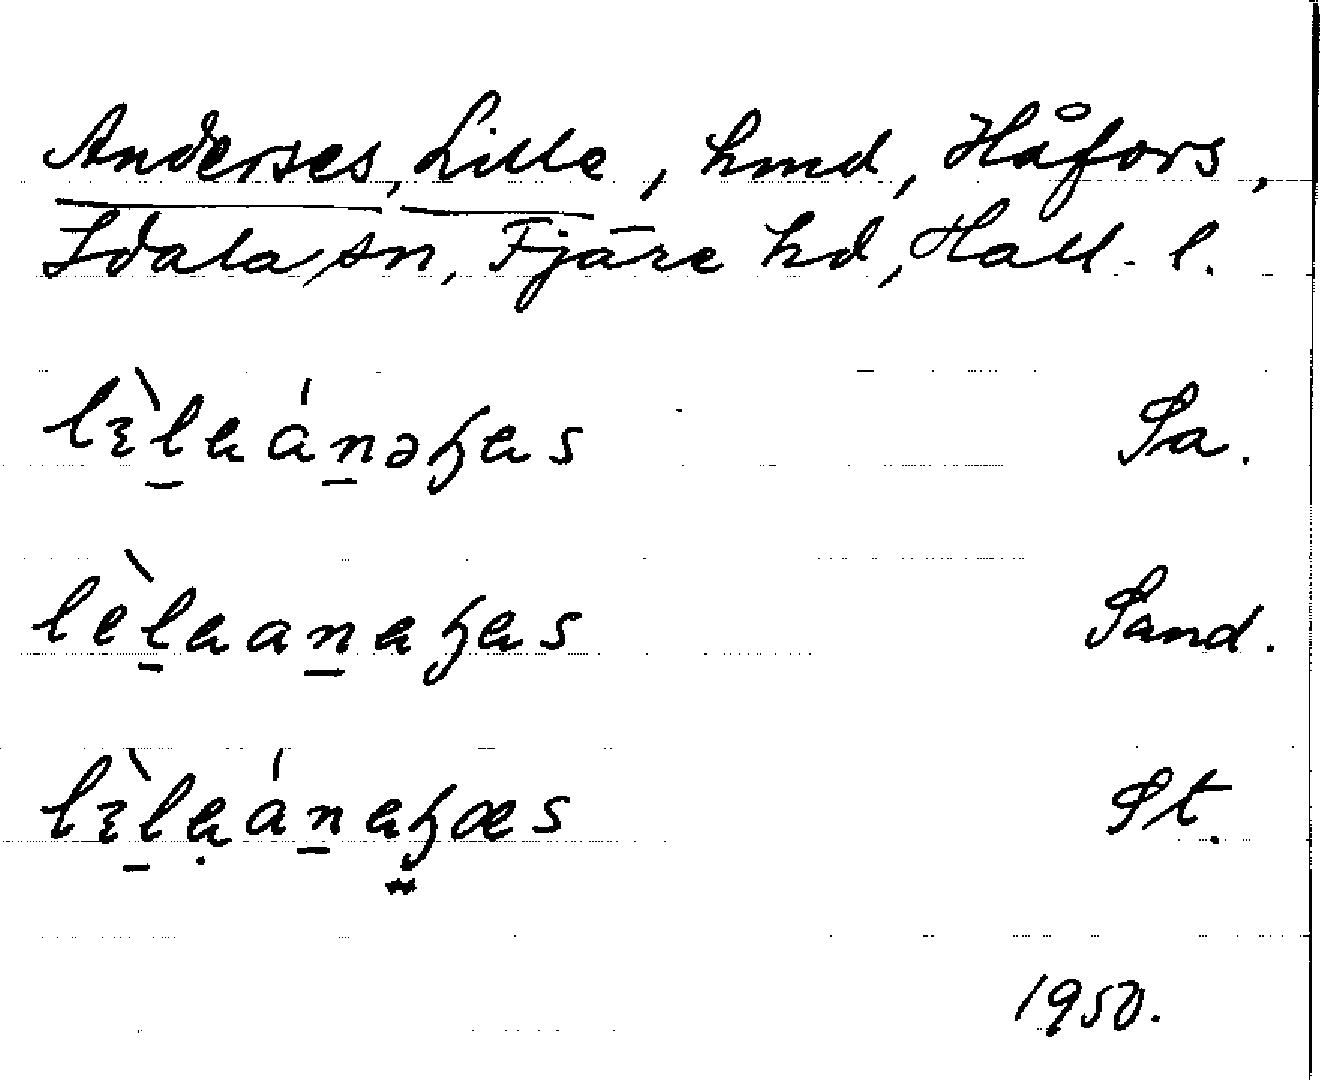 Anderses, Lille, hmd, Håfors,
Idala sn, Fjäre hd, Hall. l.
Sa.
Sand.
St.
1950.